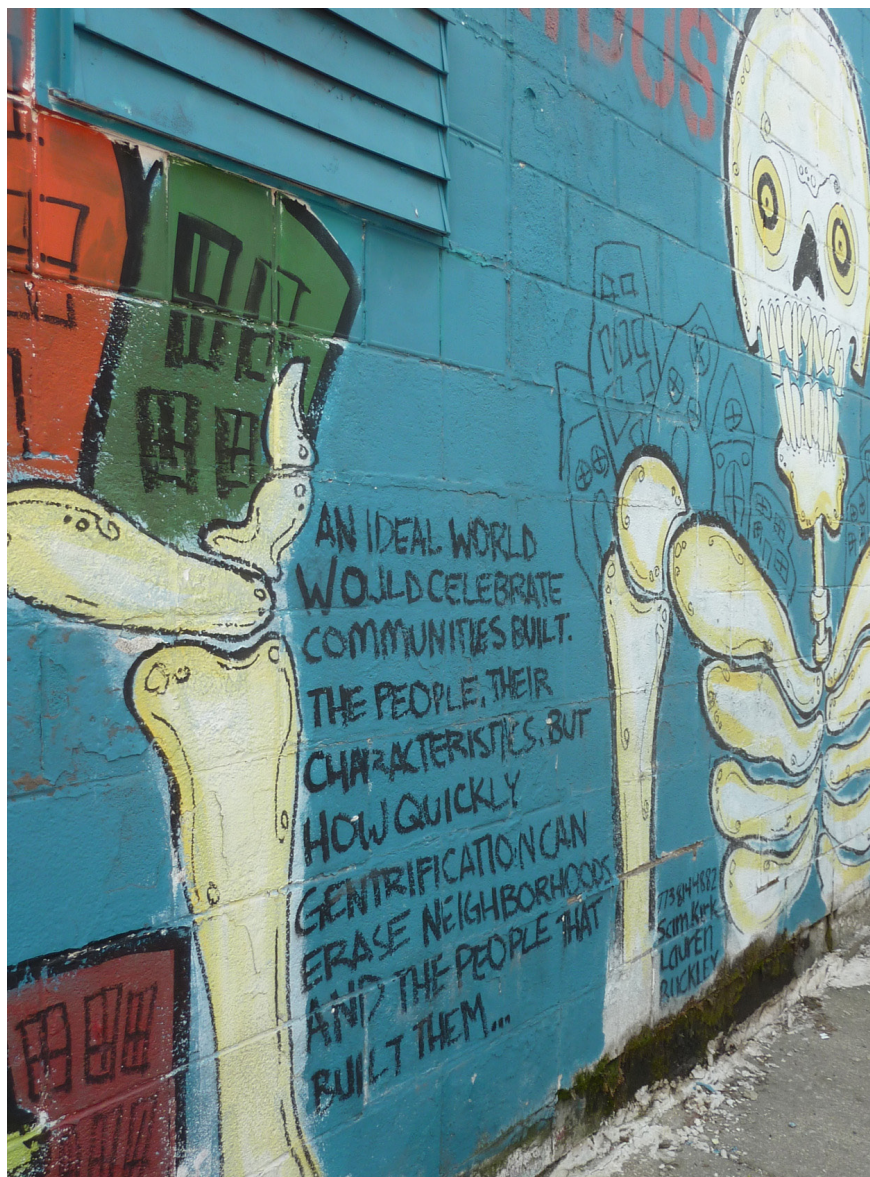 AN IDEAL WORLD
WOULD CELEBRATE
COMMUNITIES BUILT.
THE PEOPLE, THEIR
CHARACTERISTICS. BUT
HOW QUICKLY
GENTRIFICATION CAN
ERASE NEIGHBORHOODS
AND THE PEOPLE THAT
BUILT THEM...
773 814 4882
Sam Kirk
Lauren
BUCKLEY